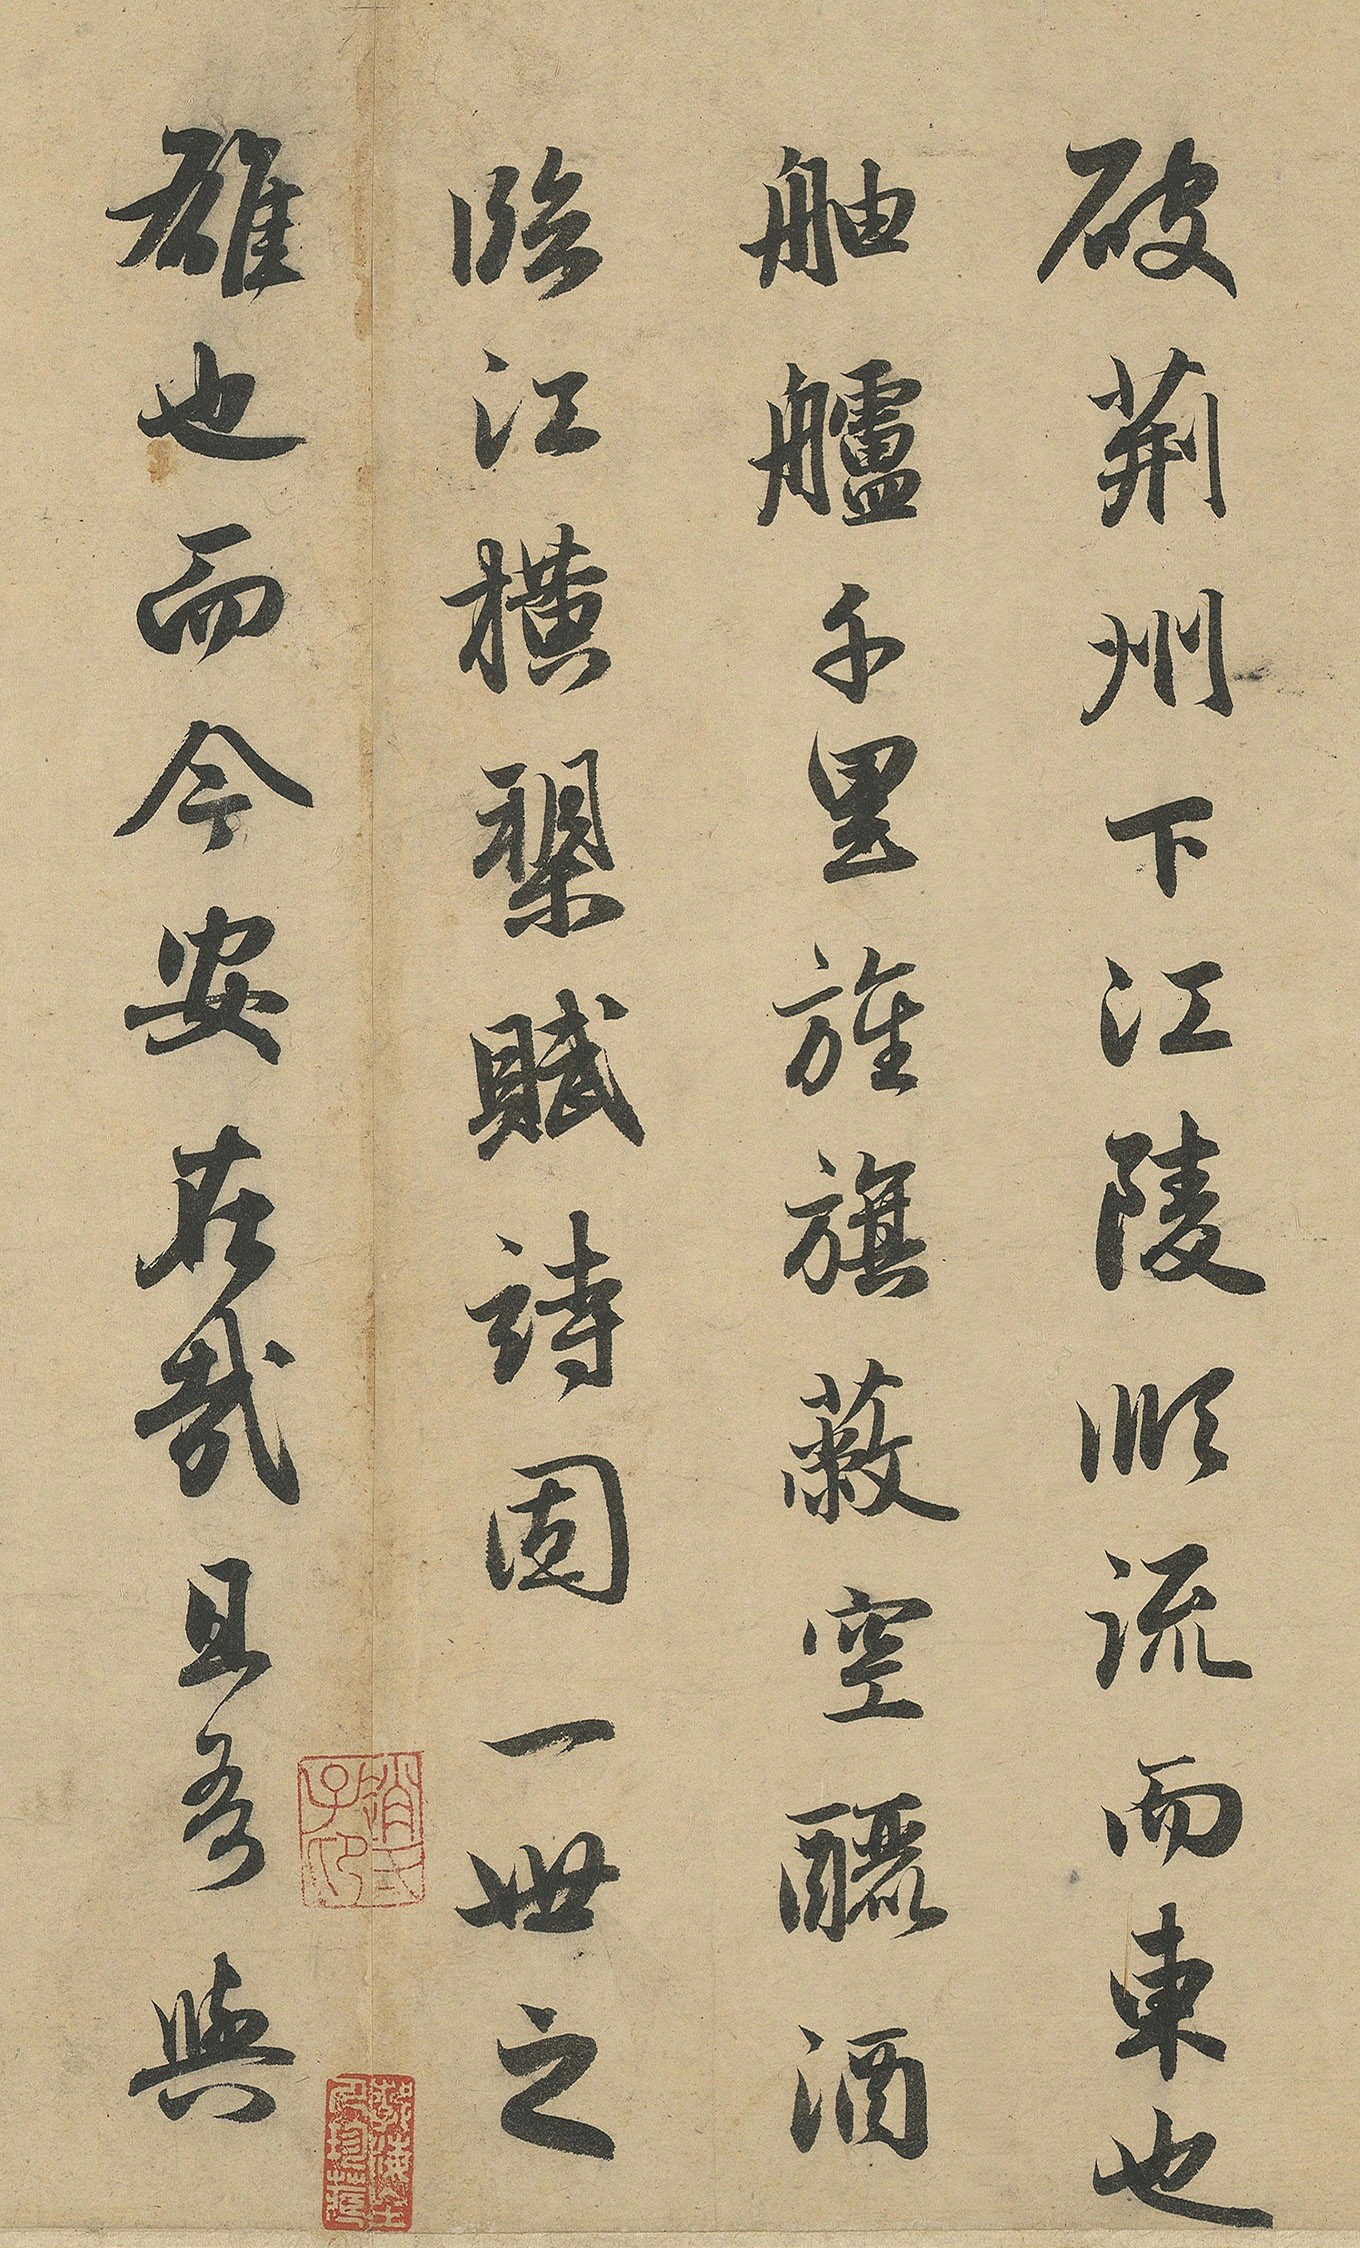 破荊州下江陵順流而東也
舳艫千里旌旗蔽空釃酒
臨江橫槊賦詩固一世之
雄也而今安在哉且吾與
趙氏子印